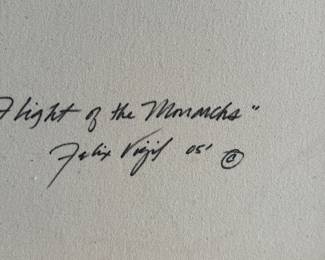 Flight of the Monarchs"
Felix Vigil 05' ©